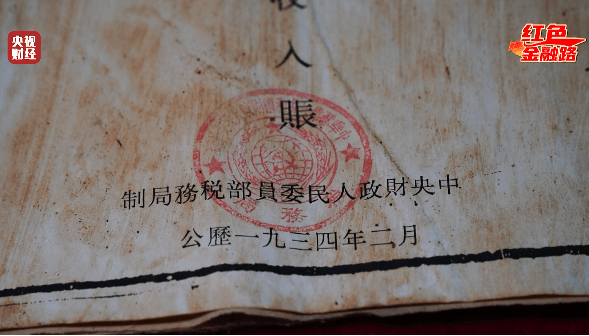 央视财经
红色
金融路
收入賬
中央財政人民委員部税務局制
公歷一九三四年二月
務